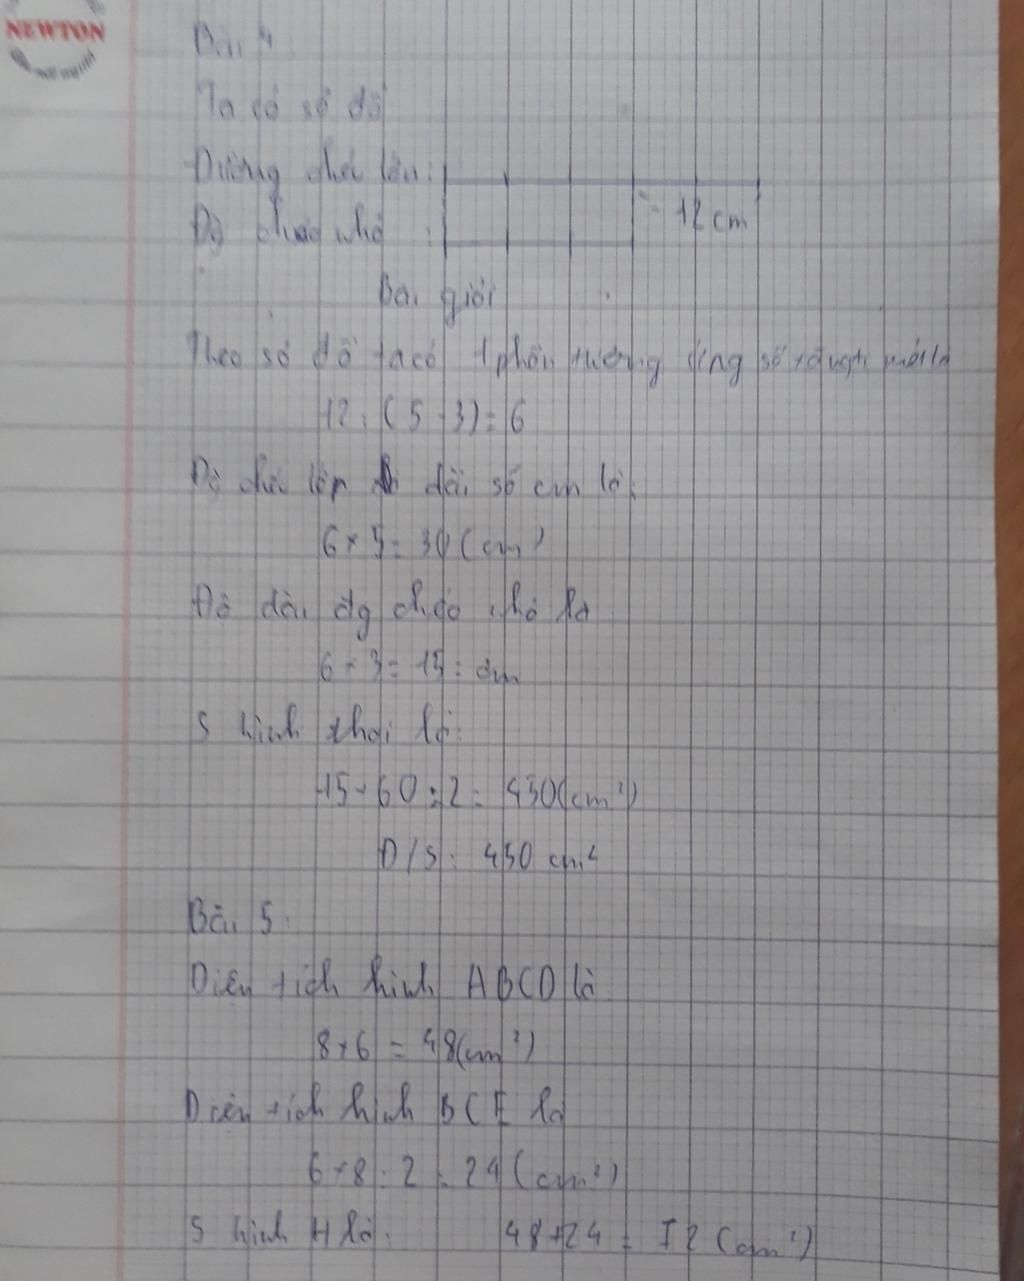 NEWTON
Bài 4
Ta có sơ đồ
Đường chéo lớn:
= 12 cm
Đg chéo nhỏ :
Bài giải
Theo sơ đồ ta có 1 phần tương ứng số
12 : (5 - 3) = 6
Độ dài số cm là:
6 × 5 = 30 (cm)
Độ dài đg chéo nhỏ là
6 × 3 = 15 : cm
S hình thoi là:
15 × 60 : 2 = 450 (cm²)
Đ/S: 450 cm²
Bài 5:
Diện tích hình ABCD là
8 × 6 = 48 (cm²)
Diện tích hình BCE là
6 × 8 : 2 = 24 (cm²)
S hình H là: 48 + 24 = 72 (cm²)